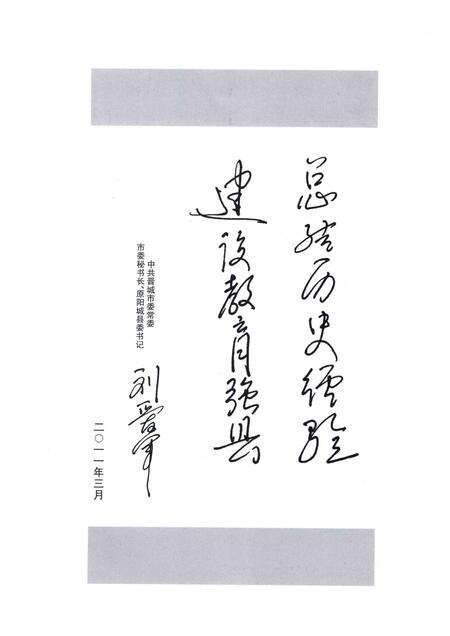 总结历史经验
建设教育强县
中共晋城市委常委
市委秘书长、原阳城县委书记
刘晋军
二〇一一年三月